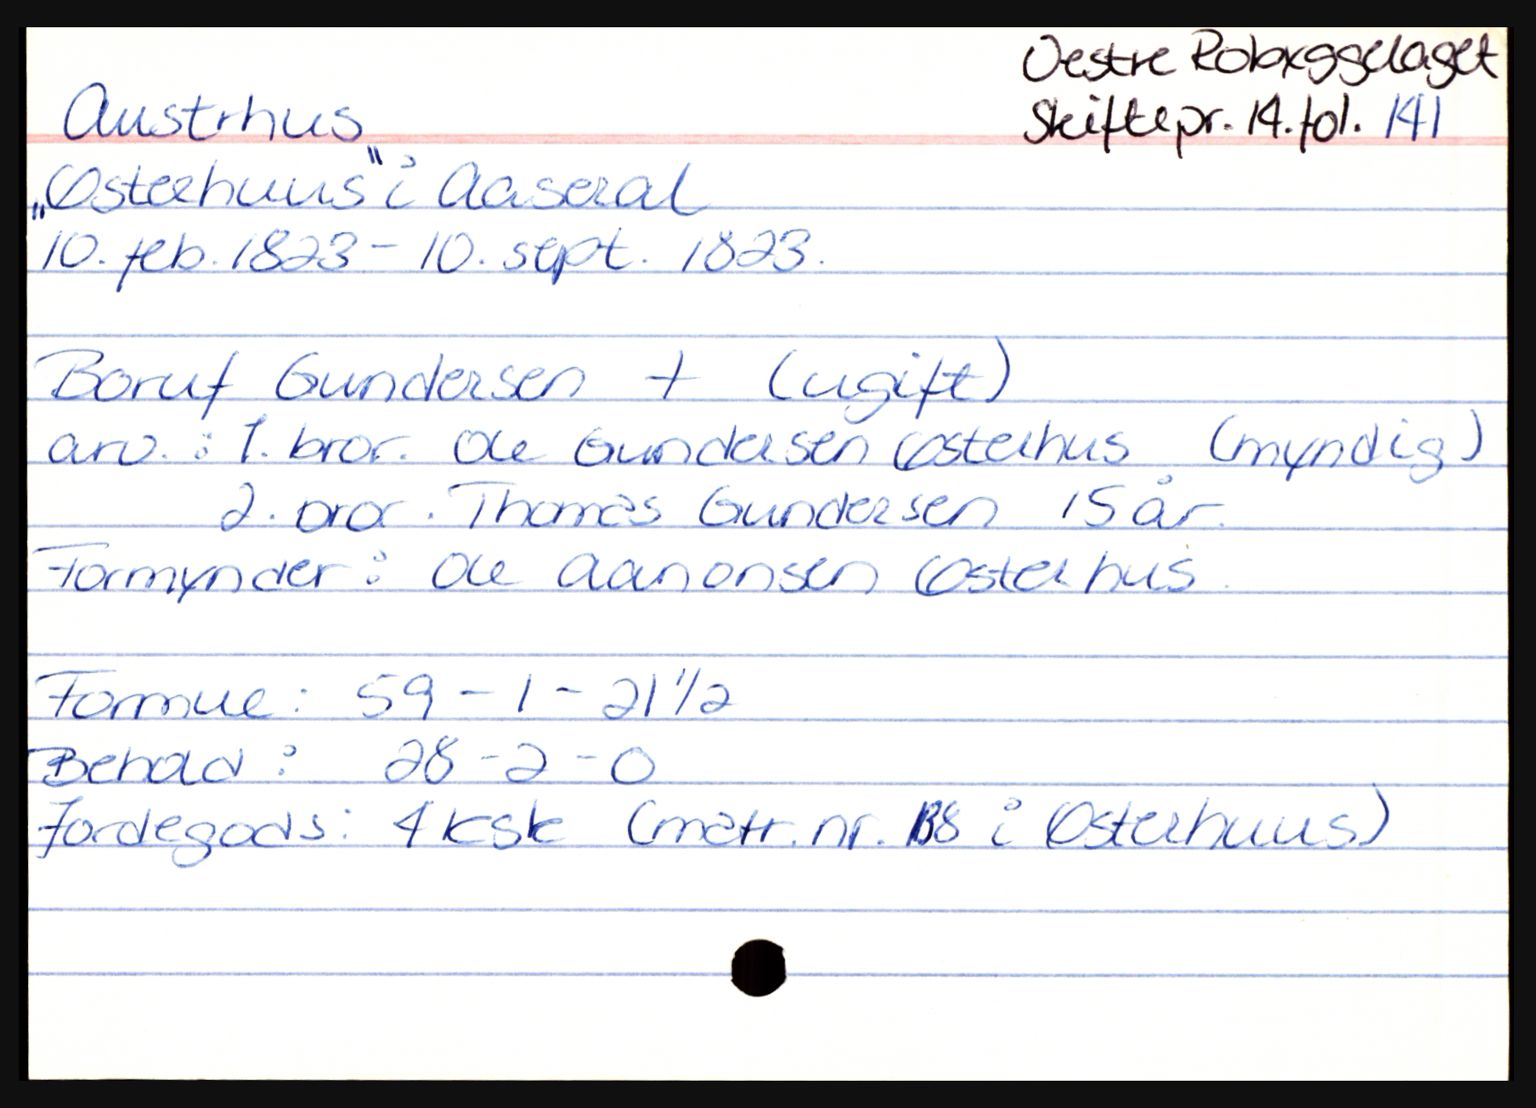 Vestre Robyggelaget
Skiftepr. 14. fol. 141
Austrhus
"Østerhuus" i Aaseral
10. feb. 1823 - 10. sept. 1823.
Boruf Gundersen + (ugift)
arv. : 1. bror. Ole Gundersen Østerhus (myndig)
2. bror. Thomas Gundersen 15 år.
Formynder : Ole Aanonsen Østerhus.
Formue : 59 - 1 - 21 1/2
Behold : 28 - 2 - 0
Jordegods : 4 ksk (matr. nr. 138 i Østerhuus)